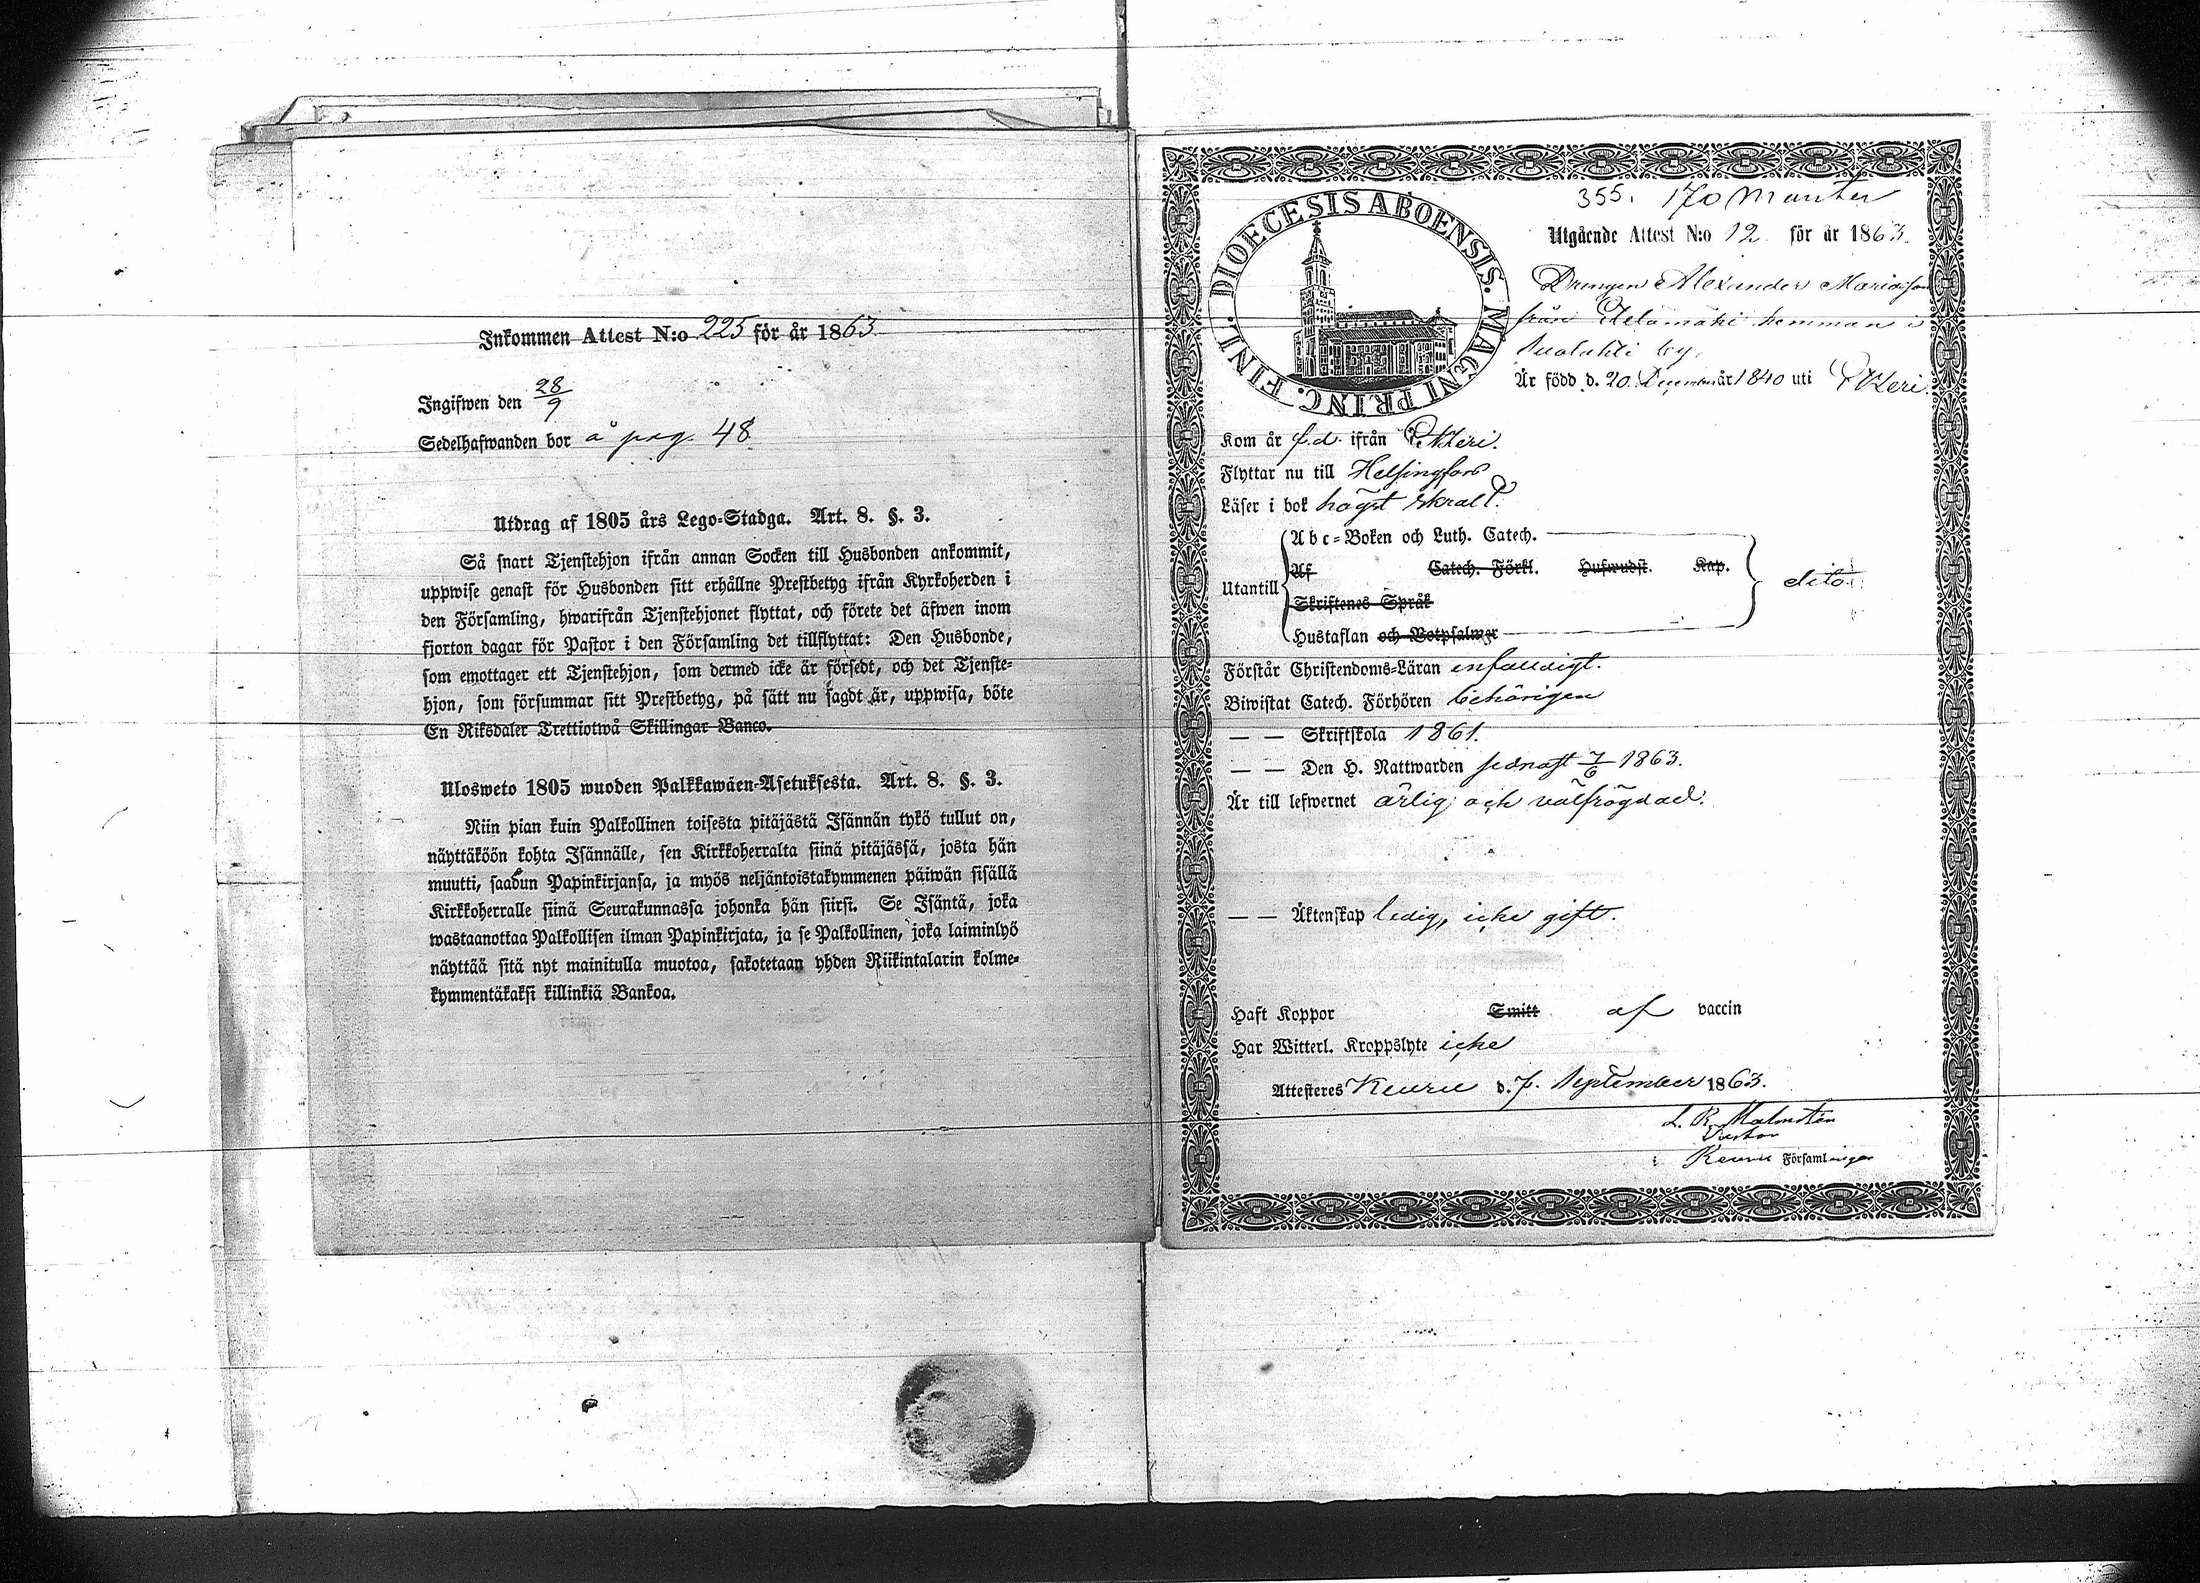 Inkommen Attest N:o 225 för år 1863
Ingifwen den 28/9
Sedelhafwanden bor å pag. 48
Utdrag af 1805 års Lego-Stadga. Art. 8. §. 3.
Så snart Tjenstehjon ifrån annan Socken till Husbonden ankommit,
uppwise genast för Husbonden sitt erhållne Prestbetyg ifrån Kyrkoherden i
den Församling, hwarifrån Tjenstehjonet flyttat, och förete det äfwen inom
fjorton dagar för Pastor i den Församling det tillflyttat: Den Husbonde,
som emottager ett Tjenstehjon, som dermed icke är försedt, och det Tjenste-
hjon, som försummar sitt Prestbetyg, på sätt nu sagdt är, uppwisa, böte
En Riksdaler Trettiotwå Skillingar Banco.
Ulosweto 1805 wuoden Palkkawäen-Asetuksesta. Art. 8. §. 3.
Niin pian kuin Palkollinen toisesta pitäjästä Isännän tykö tullut on,
näyttäköön kohta Isännälle, sen Kirkkoherralta siinä pitäjässä, josta hän
muutti, saadun Papinkirjansa, ja myös neljäntoistakymmenen päiwän sisällä
Kirkkoherralle siinä Seurakunnassa johonka hän siirsi. Se Isäntä, joka
wastaanottaa Palkollisen ilman Papinkirjata, ja se Palkollinen, joka laiminlyö
näyttää sitä nyt mainitulla muotoa, sakotetaan yhden Riikintalarin kolme-
kymmentäkaksi killinkiä Bankoa.
DIOECESIS ABOENSIS. MAGNI PRINC. FINL.
355. 170 Mantter
Utgående Attest N:o 12 för år 1863.
Drengen Alexander Mariason
från hemman i
Suolahti by,
Är född d. 20 December år 1840 uti Etzeri.
Kom år f.d. ifrån Etzeri.
Flyttar nu till Helsingfors
Läser i bok högst skralt.
Abc-Boken och Luth. Catech.
Af Catech. Förkl. Hufwudst. Kap.
Utantill dito.
Skriftenes Språk
Hustaflan och Botpsalmer
Förstår Christendoms-Läran enfaldigt.
Biwistat Catech. Förhören behörigen
— — Skriftskola 1861.
— — Den H. Nattwarden sednast 7/6 1863.
Är till lefwernet ärlig och välfrögdad.
— — Äktenskap ledig, icke gift.
Haft Koppor Smitt af vaccin
Har Witterl. Kroppslyte icke
Attesteres Keuru d. 7. September 1863.
L. R. Malmstén
Pastor
i Keuru Församlingen